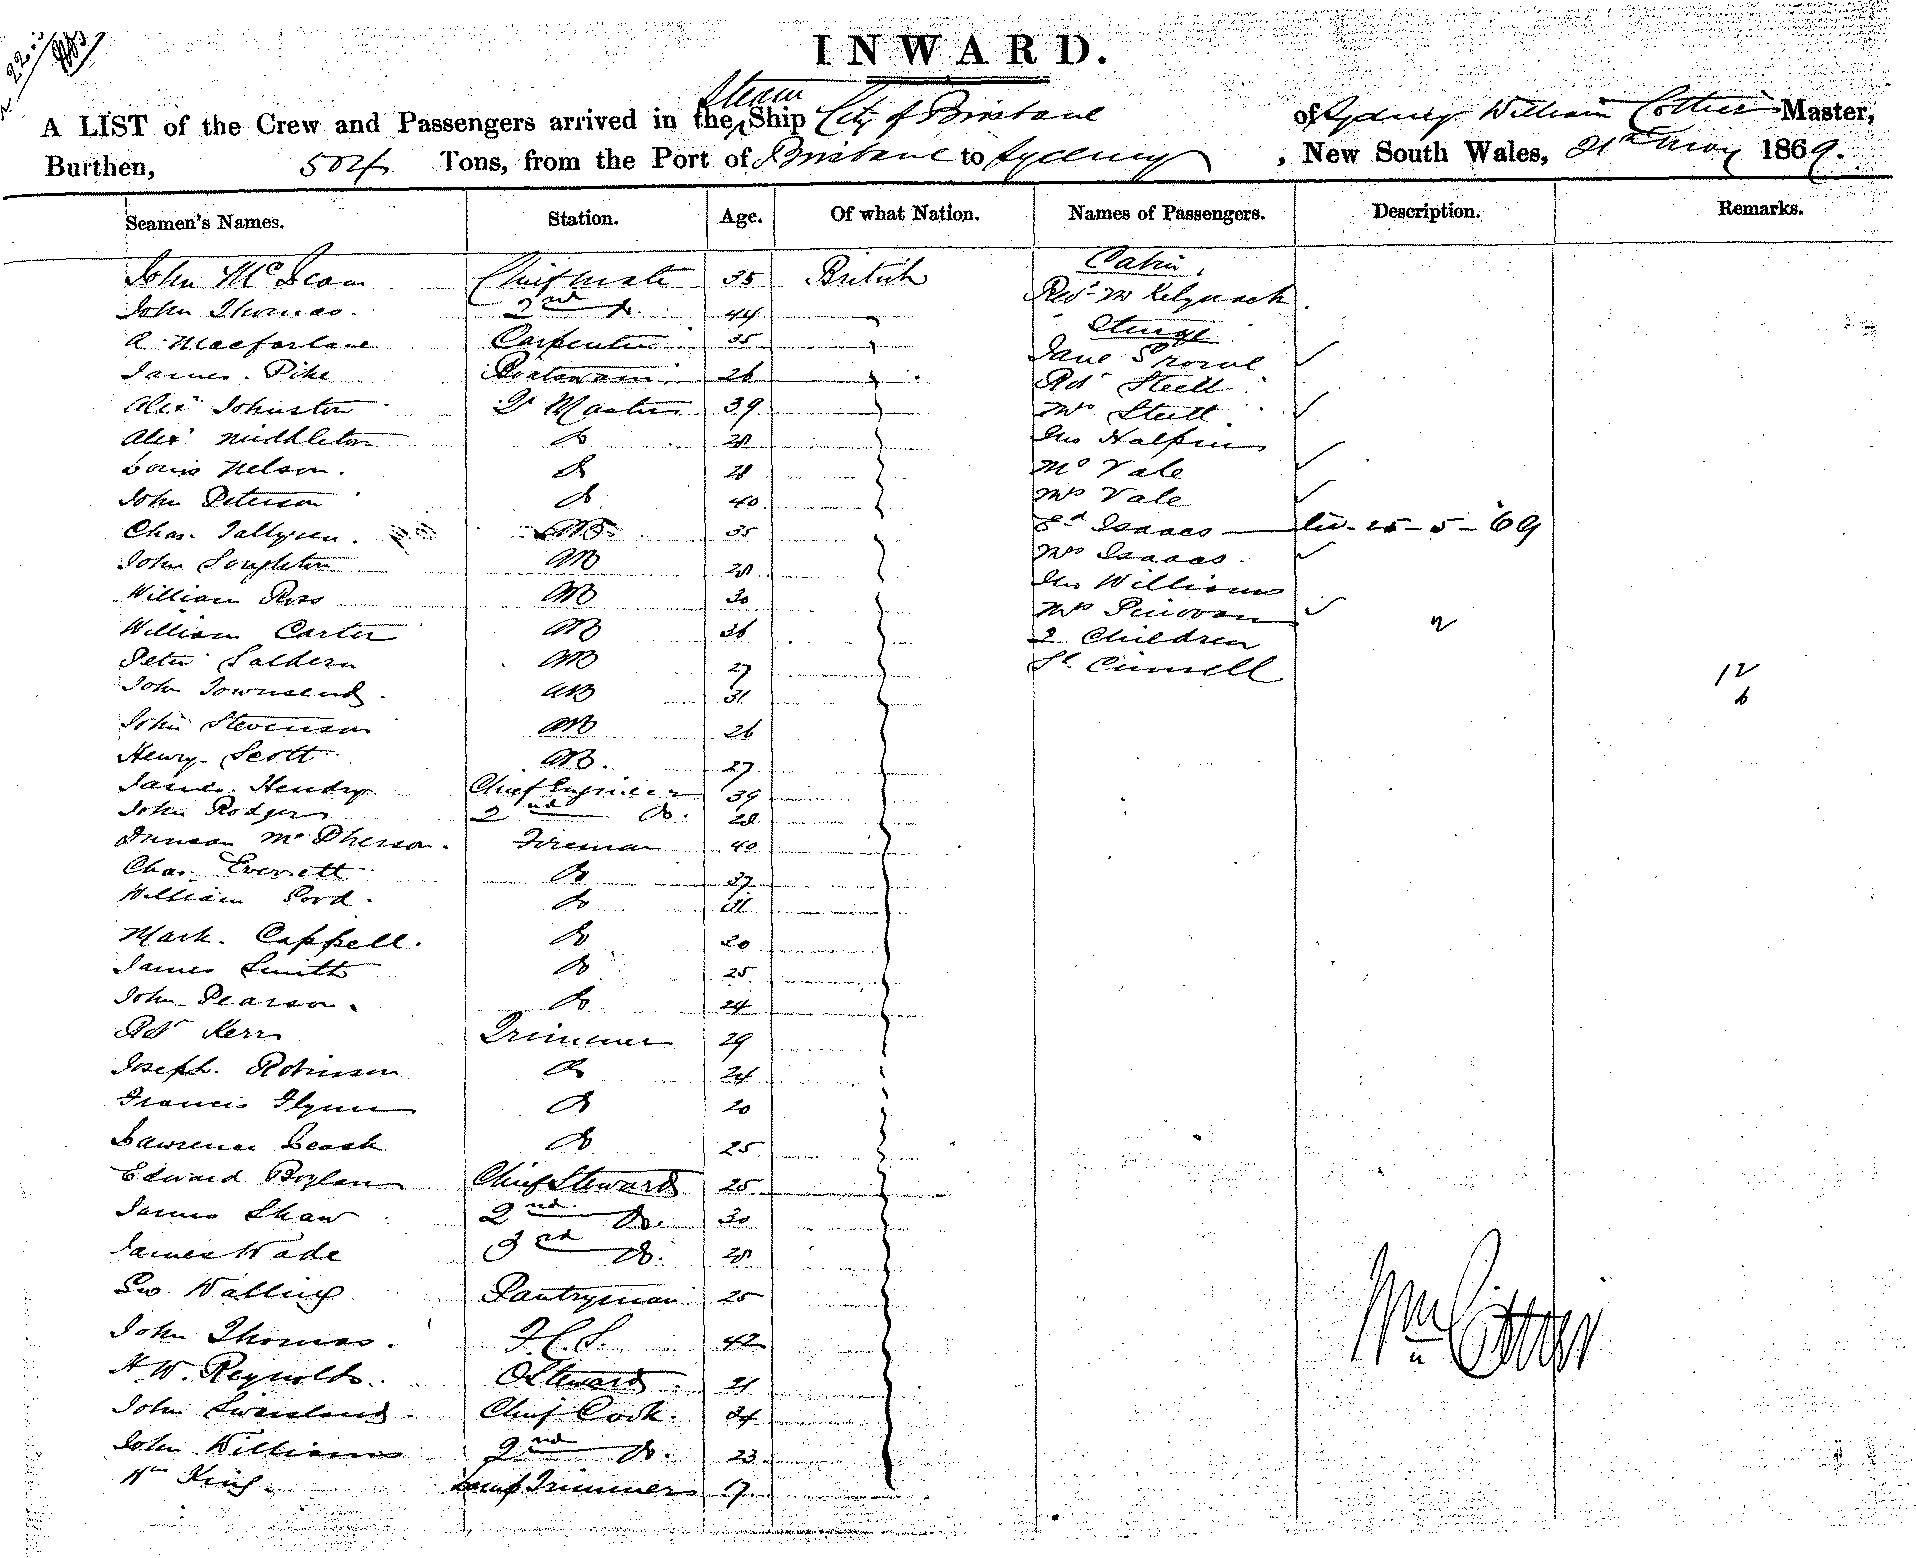 INWARD.
Steam
A LIST of the Crew and Passengers arrived in the Ship City of Brisbane of Sydney William Cottier Master,
Burthen, 504 Tons, from the Port of Brisbane to Sydney, New South Wales, 21st May 1869.
Seamen's Names. Station. Age. Of what Nation. Names of Passengers. Description. Remarks.
Cabin.
John Mc Chief Mate 35 British
Revd Mr
John Thomas. 2nd Do. 44
Steerage
A Macfarlane Carpenter 35
Jane
James Pike Boatswain 26
Rdt Steett
Alexr Johnston Qr Master 39
Mrs Steett
Alexr Middleton Do 28
Jno Halpin
Louis Nelson. Do 28
Mr Vale
John Peterson Do 40
Mrs Vale
Chas. AB 35
Ed Isaacs liv. 25-5-69
John AB 28
Mrs Isaacs.
Jno Williams
William Ross AB 30
Mrs
William Carter AB 36
2 Children
Peter AB 27
St.
12
John Townsend. AB 31
6
John Stevenson AB 26
Henry Scott AB. 27
James Hendry Chief Engineer 39
John Rodgers 2nd Do. 28
Duncan Mc Pherson. Fireman 40
Chas. Everett Do 37
William Do
Mark. Cappell. Do 20
James Smith Do 25
John Pearson. Do 24
Rdt Kerr Trimmer 29
Joseph. Robinson Do 24
Francis Flynn Do 20
Lawrence Leash Do 25
Edward Boylan Chief Steward 25
James Shaw 2nd Do. 30
James Wade 3rd Do. 28
Geo. Walling Pantryman 25
John Thomas. F.C.S. 42
H W. Reynolds. O Steward 21
John Chief Cook. 34
John Williams 2nd Do. 23
Wm King. Lamp Trimmer 17
Wm Cottier